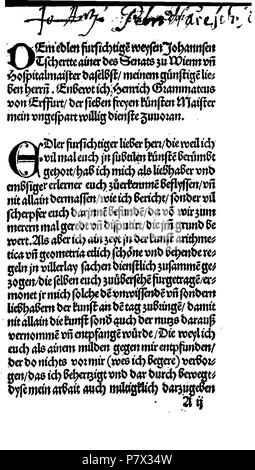 Dem edlen fursichtigē weysen Johannsen
Tschertte ainer des Senats zu Wienn vñ
Hospitalmaister daselbst/ meinem günstigē lie
ben herrñ. Enbewt ich/ Henrich Grammateus
von Erffurt/ der sieben freyen künsten Maister
mein vngespart willig dienste zuuoran.
Edler fursichtiger lieber her/ die weil ich
vil mal euch jn subtilen künstē berümbt
gehort/ hab ich mich als liebhaber vnd
embsiger erlerner euch zůerkennē beflyssen/ vñ
nit allain dermassen/ wie ich bericht/ sonder vil
scherpfer euch darjnnē befindē/ da võ wir zum
mereren mal geredt vñ disputirt/ die jnñ grund be
wert. Als aber ich ain zeyt jn der kunst arithme
tica vñ geometria etlich schöne vnd behende re
geln jn villerlay sachen dienstlich zusammē ge
zogen/ die selben euch zuübersehē furgetragē/ er
monet jr mich solche dē vnwissendē vñ sondern
liebhabern der kunst an dē tag zubūngē/ damit
nit allain die kunst sond auch der nutzs darauß
vernommē vñ entpfangē würde/ Die weyl ich
euch als ainen milden gegen mir entpfunden/
der do nichts vor mir (wes ich begere) verbor
gen/ das ich behertzigt vnd dar durch bewege-
dyse mein arbait auch miltigklich darzugeben
A ij